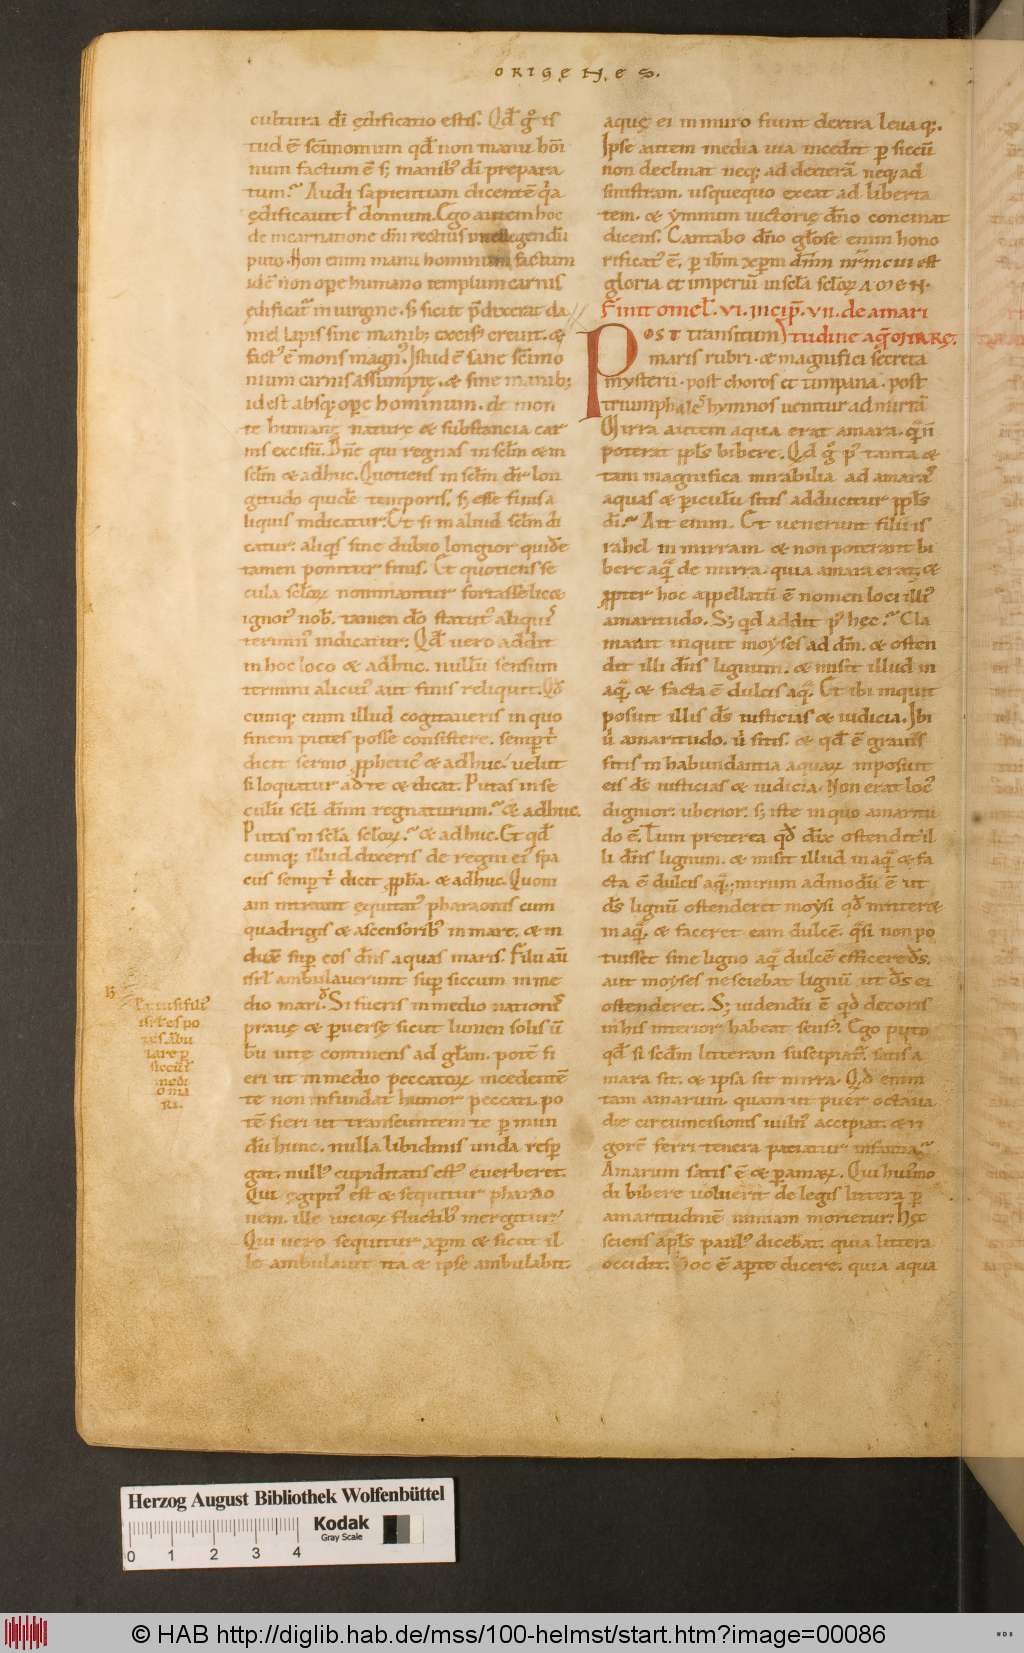 ORIGENES.
cultura dī ędificatio estis. Qd̄ gͦ is
tud ē scīmonium qd̄ non manu hoī
num factum ē s; manibꝰ dī prepara
tum? Audi sapientiam dicentē qͥa
ędificauit sͥ domum. Ego autem hoc
de incarnatione dnī rectius intellegendū
puto. Non enim manu hominum factum
id ē non opere humano templum carnis
ędificatͬ in uirgine. s; sicut p̄dixerat da
niel lapis sine manibꝰ excisꝰ creuit. &
factꝰ ē mons magnꝰ. Istud ē sane scīmo
nium carnis assumptę. & sine manibꝰ
id est absq; opere hominum. de mon
te humanę naturę & substantia car
nis excisū. Dnē qui regnas in sclm̄ & in
sclm̄ & adhuc. Quotiens in sclm̄ dr̄ lon
gitudo quidē temporis. s; esse finis a
liquis indicatur. Et si in aliud sclm̄ di
catur. aliqͥs sine dubio longior quidē
tamen ponitur finis. Et quotiens se
cula sclōꝝ nominantur fortasse lic&
ignotꝰ nob̄. tamen dō statutꝰ aliquis
terminꝰ indicatur. Qd̄ uero addit
in hoc loco & adhuc. nullū sensum
termini alicuiꝰ aut finis reliquit. Qd̄
cumq; enim illud cogitaueris in quo
finem putes posse consistere. semp tͥ
dicit sermo ꝓpheticꝰ & adhuc. uelut
si loquatur ad te & dicat. Putas in se
culū sclī dnm̄ regnaturum? & adhuc.
Putas in scla sclōꝝ? & adhuc. Et qd̄
cumq; illud dixeris de regni eiꝰ spa
ciis semp tͥ dicit ꝓpha. & adhuc. Quoni
am intrauit equitatꝰ pharaonis cum
quadrigis & ascensoribꝰ in mare. & in
duxit sup eos dns̄ aquas maris. Filii aū
isrl̄ ambulauerunt sup siccum in me
dio maris. Si fueris in medio nationis
prauę & ꝑuersę sicut lumen solis ū
bū uitę continens ad glam̄. potē fi
eri ut in medio peccatoꝝ incedentē
te non infundat humor peccati. po
tē fieri ut transeuntem te ꝑ mun
dū hunc. nulla libidinis unda resp
gat. nullꝰ cupiditatis estꝰ euerberet.
Qui ęgiptiꝰ est & sequitur phara
onem. ille uicioꝝ fluctibꝰ mergitur.
Qui uero sequitur xp̄m & sicut il
le ambulauit ita & ipse ambulabit.
Et tu si filiꝰ
isrl̄ es po
tes ābu
lare ꝑ
siccū ī
medi
o ma
ris.
aquę ei in muro fiunt dextra leuaq;.
Ipse autem media uia incedit ꝑ siccū
non declinat neq; ad dexterā neq; ad
sinistram. usquequo exeat ad liberta
tem. & ymnum uictorię dn̄o concinat
dicens. Cantabo dn̄o gl̄ose enim hono
rificatꝰ ē. ꝑ ihm̄ xp̄m dnm̄ nr̄m cui est
gloria et imperiū in scla sclōꝝ AMEN.
Finit omel̄. VI. incip̄. VII. de amari
tudine aqͣ MIRRĘ.
POST transitum
maris rubri. & magnifici secreta
mysterii. post choros et timpana. post
triumphales hymnos uenitur ad mirrā
Mirra autem aqua erat amara. quā n̄
poterat ppl̄s bibere. Qd̄ gͦ pꝰ tanta &
tam magnifica mirabilia ad amaras
aquas & ꝑiculū sitis adducitur ppl̄s
dī? Ait enim. Et uenerunt filii is
rahel in mirram & non poterant bi
bere aqͣ de mirra. quia amara erat. &
ꝓpter hoc appellatū ē nomen loci illiꝰ
amaritudo. S; quid addit pꝰ hęc? Cla
mauit inquit moyses ad dnm̄. & osten
dit illi dns̄ lignum. & misit illud in
aqͣ. & facta ē dulcis aqͣ. Et ibi inquit
posuit illis ds̄ iusticias & iudicia. Ibi
uͥ amaritudo. uͥ sitis. & qd̄ ē grauiꝰ
sitis in habundantia aquaꝝ inposuit
eis ds̄ iusticias & iudicia. Non erat locꝰ
dignior. uberior. s; iste in quo amaritu
do ē. Tum preterea qd̄ dixit ostendit il
li dns̄ lignum. & misit illud in aqͣ & fa
cta ē dulcis aqͣ. mirum admodū ē ut
ds̄ lignū ostenderet moysi qd̄ mitter&
in aqͣ. & faceret eam dulcē. qͣsi non po
tuisset sine ligno aqͣ dulcē efficere ds̄.
aut moyses nesciebat lignū ut ds̄ ei
ostenderet. S; uidendū ē quid decoris
in his interior habeat sensꝰ. Ego puto
qd̄ si scdm̄ litteram suscipiatͬ. satis a
mara sit. & ipsa sit mirra. Qd̄ enim
tam amarum quam ut puer octaua
die circumcisionis uulnꝰ accipiat. & ri
gorē ferri tenera patiatur infantia?
Amarum satis ē & ꝑamaꝝ. Qui huiꝰmo
di bibere uoluerit de legis littera ꝑ
amaritudinē nimiam morietur. Hęc
sciens apl̄s paulꝰ dicebat. quia littera
occidit. Hoc ē aꝑte dicere. quia aqua
Herzog August Bibliothek Wolfenbüttel
Kodak
Gray Scale
0 1 2 3 4
© HAB http://diglib.hab.de/mss/100-helmst/start.htm?image=00086
HAB